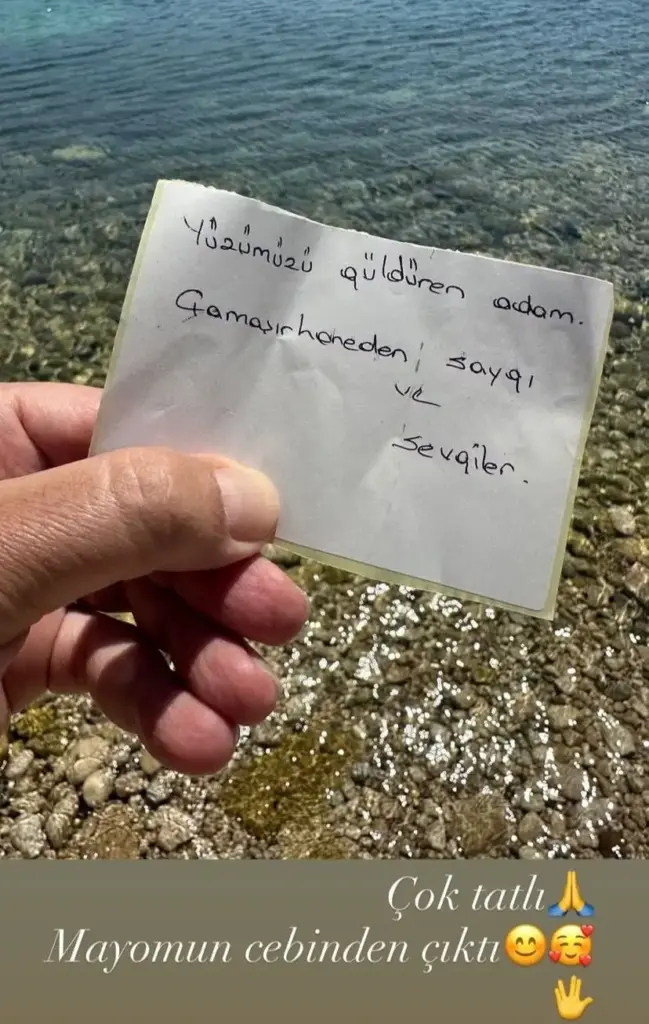 Yüzümüzü güldüren adam.
Çamaşırhaneden saygı
ve
sevgiler.
Çok tatlı🙏
Mayomun cebinden çıktı😊🥰
🖖